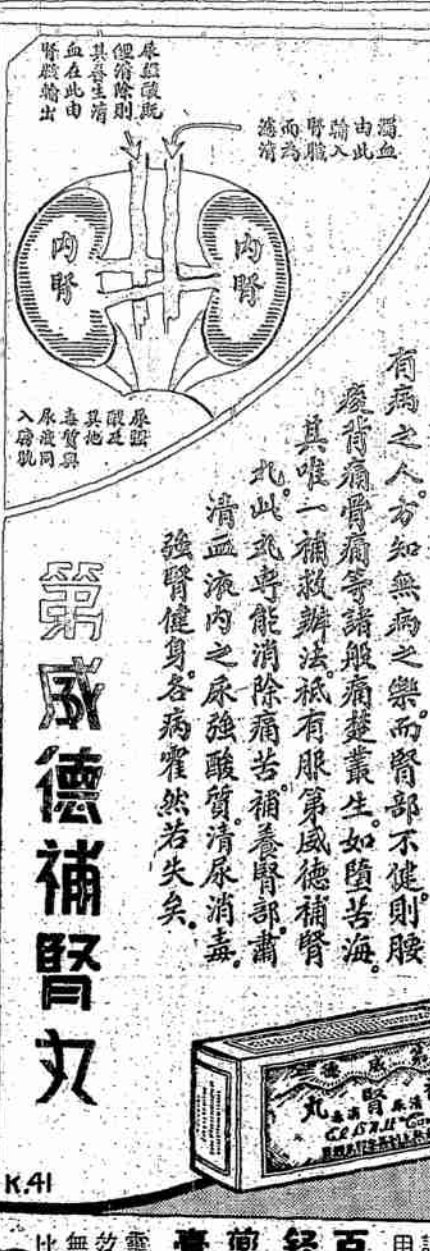 濁血
由此
輸入
腎臟
而為
濾清
尿強酸既
經濾除則
其養生清
血在此由
腎臟輸出
內腎
內腎
尿強
酸及
其他
毒質與
尿液同
入膀胱
有病之人。方知無病之樂。而腎部不健。則腰
痠背痛骨痛等諸般痛楚叢生。如墮苦海。
其唯一補救辦法。祇有服第威德補腎
丸。此丸專能消除痛苦。補養腎部。肅
清血液內之尿強酸質。清尿消毒。
強腎健身。各病霍然若失矣。
第威德補腎丸
K.41